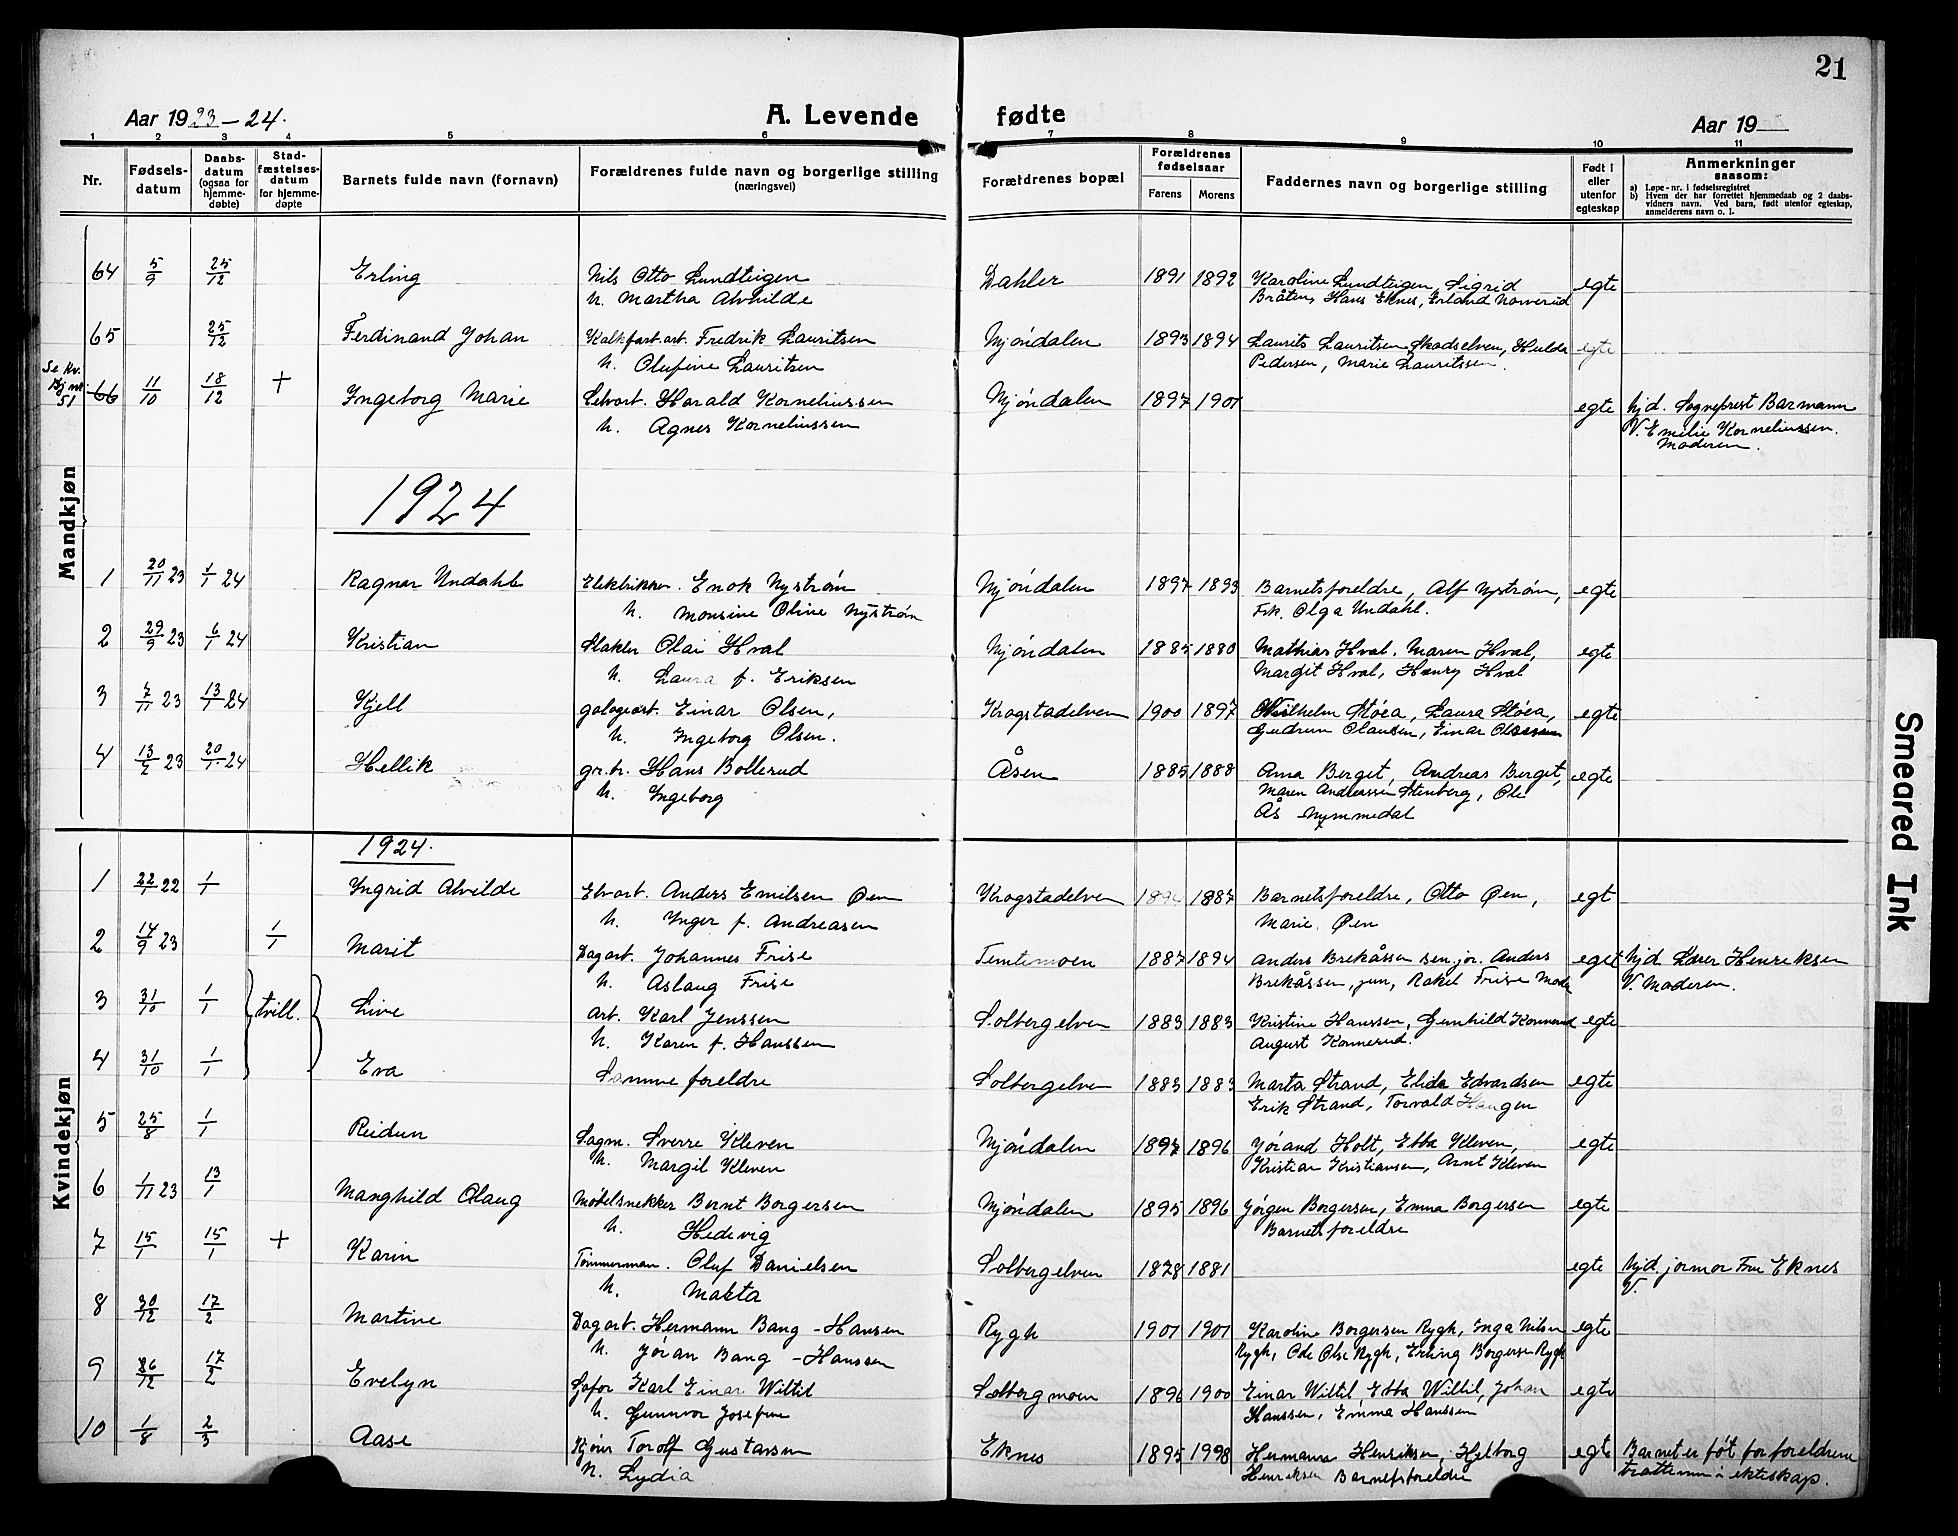 21
Aar 1923-24.
A. Levende fødte
Aar 19
1 2 3 4 5 6 7 8 9 10 11
Nr.
Fødsels-datum
Daabs-datum (ogsaa for hjemme-døbte)
Stad-fæstelses-datum for hjemme-døpte
Barnets fulde navn (fornavn)
Forældrenes fulde navn og borgerlige stilling (næringsvei)
Forældrenes bopæl
Forældrenes fødselsaar
Farens Morens
Faddernes navn og borgerlige stilling
Født i eller utenfor egteskap
Anmerkninger saasom:
a) Løpe-nr. i fødselsregistret
b) Hvem der har forrettet hjemmedaab og 2 daabs-
vidners navn. Ved barn, født utenfor egteskap,
anmelderens navn o. l.
Mandkjøn
64 5/9 25/12 Erling Nils Otto Lundteigen Dahler 1891 1892 Karoline Lundteigen, Sigrid egte
h. Martha Alvhilde Bråten, Hans Eknes, Erland
65 25/12 Ferdinand Johan Fredrik Lauritsen Mjøndalen 1893 1894 Laurits Lauritsen Skodselven, Hulda egte
h. Olufine Lauritsen Pedersen, Marie Lauritssen.
Se Kv. Kj nr. 51
66 11/10 18/12 + Ingeborg Marie Harald Korneliussen Mjøndalen 1897 1901 egte hjd. Sogneprest Barmann
h. Agnes Korneliussen V. Emilie Korneliussen.
Moderen.
1924
1 20/11 23 1/1 24 Ragnar Undahl Elektriker. Enok Nystrøm Mjøndalen 1897 1893 Barnetsforeldre, Alf Nystrøm, egte
h. Monsine Oline Nystrøm Frk. Olga Undahl.
2 29/9 23 6/1 24 Kristian Olai Hval Mjøndalen 1885 1880 Mathias Hval. Maren Hval, egte
h. Laura f. Eriksen Margit Hval, Henry Hval
3 7/11 23 13/1 24 Kjell Einar Olsen, Krogstadelven 1900 1897 Wilhelm Støa, Laura Støa, egte
h. Ingeborg Olsen. Gudrun Olausen, Einar
4 13/2 23 20/1 24 Hellik gr.br. Hans Bollerud Åsen 1885 1888 Anna Berget, Andreas Berget, egte
h. Ingeborg Maren Andreassen Stenberg, Ole
Ås Nymmedal
Kvindekjøn
1924.
1 22/1 22 1/1 Ingrid Alvilde Anders Emilsen Øen Krogstadelven 1887 Barnetsforeldre, Otto Øen, egt
h. Inger f. Andreasen Marie Øen
2 14/9 23 1/1 Marit Dagart. Johannes Frise Temtemoen 1887 1894 Anders Brekåssen sen. jr. Anders eget hjd Lærer Henriksen
h. Aslaug Frise Brekåssen, jun, Rakel Frise V. Moderen.
3 31/10 1/1 tvill. Live Arb. Karl Jenssen Solbergelven 1883 1883 Kristine Hanssen, Gunhild Konnerud egte
h. Karen f. Hanssen August Konnerud.
4 31/10 1/1 Eva Samme foreldre Solbergelven 1883 1883 Marta Strand, Elida Edvardsen egte
Erik Strand, Torvald Haugen
5 25/8 1/1 Reidun Sagm. Sverre Kleven Mjøndalen 1897 1896 Jørand Holt, Ebba Kleven, egte
h. Margit Kleven Kristian Kristiansen, Arnt Kleven
6 1/11 23 13/1 Manghild Olaug Møbelsnekker Bernt Borgersen Mjøndalen 1895 1896 Jørgen Borgersen, Emma Borgersen egte
h. Hedevig Barnetsforeldre
7 15/1 15/1 + Karin Tømmerman. Oluf Danielsen Solbergelven 1878 1881 egte hjd. jormor Fru Eknes
h. Marta V.
8 30/12 17/2 Martine Dagart. Hermann Bang-Hansen Rygh 1901 1901 Karoline Borgersen Rygh, Inga Nilsen egte
h. Jøran Bang-Hanssen Rygh, Ole Olse Rygh, Erling Borgersen Rygh
9 26/12 17/2 Evelyn Sjafør Karl Einar Wiltil Solbergmoen 1896 1900 Einar Wiltil Ebba Wiltil, Johan egte
h. Gunnvor Josefine Hanssen, Emma Hanssen
10 1/8 2/3 Aase Torolf Gustavsen Eknes 1895 1998 Hermann Henriksen, Hjelborg egte Barnet er føt for foreldrene
h. Lydia Henriksen Barnetsforeldre tratte inn i ekteskap.
Smeared Ink